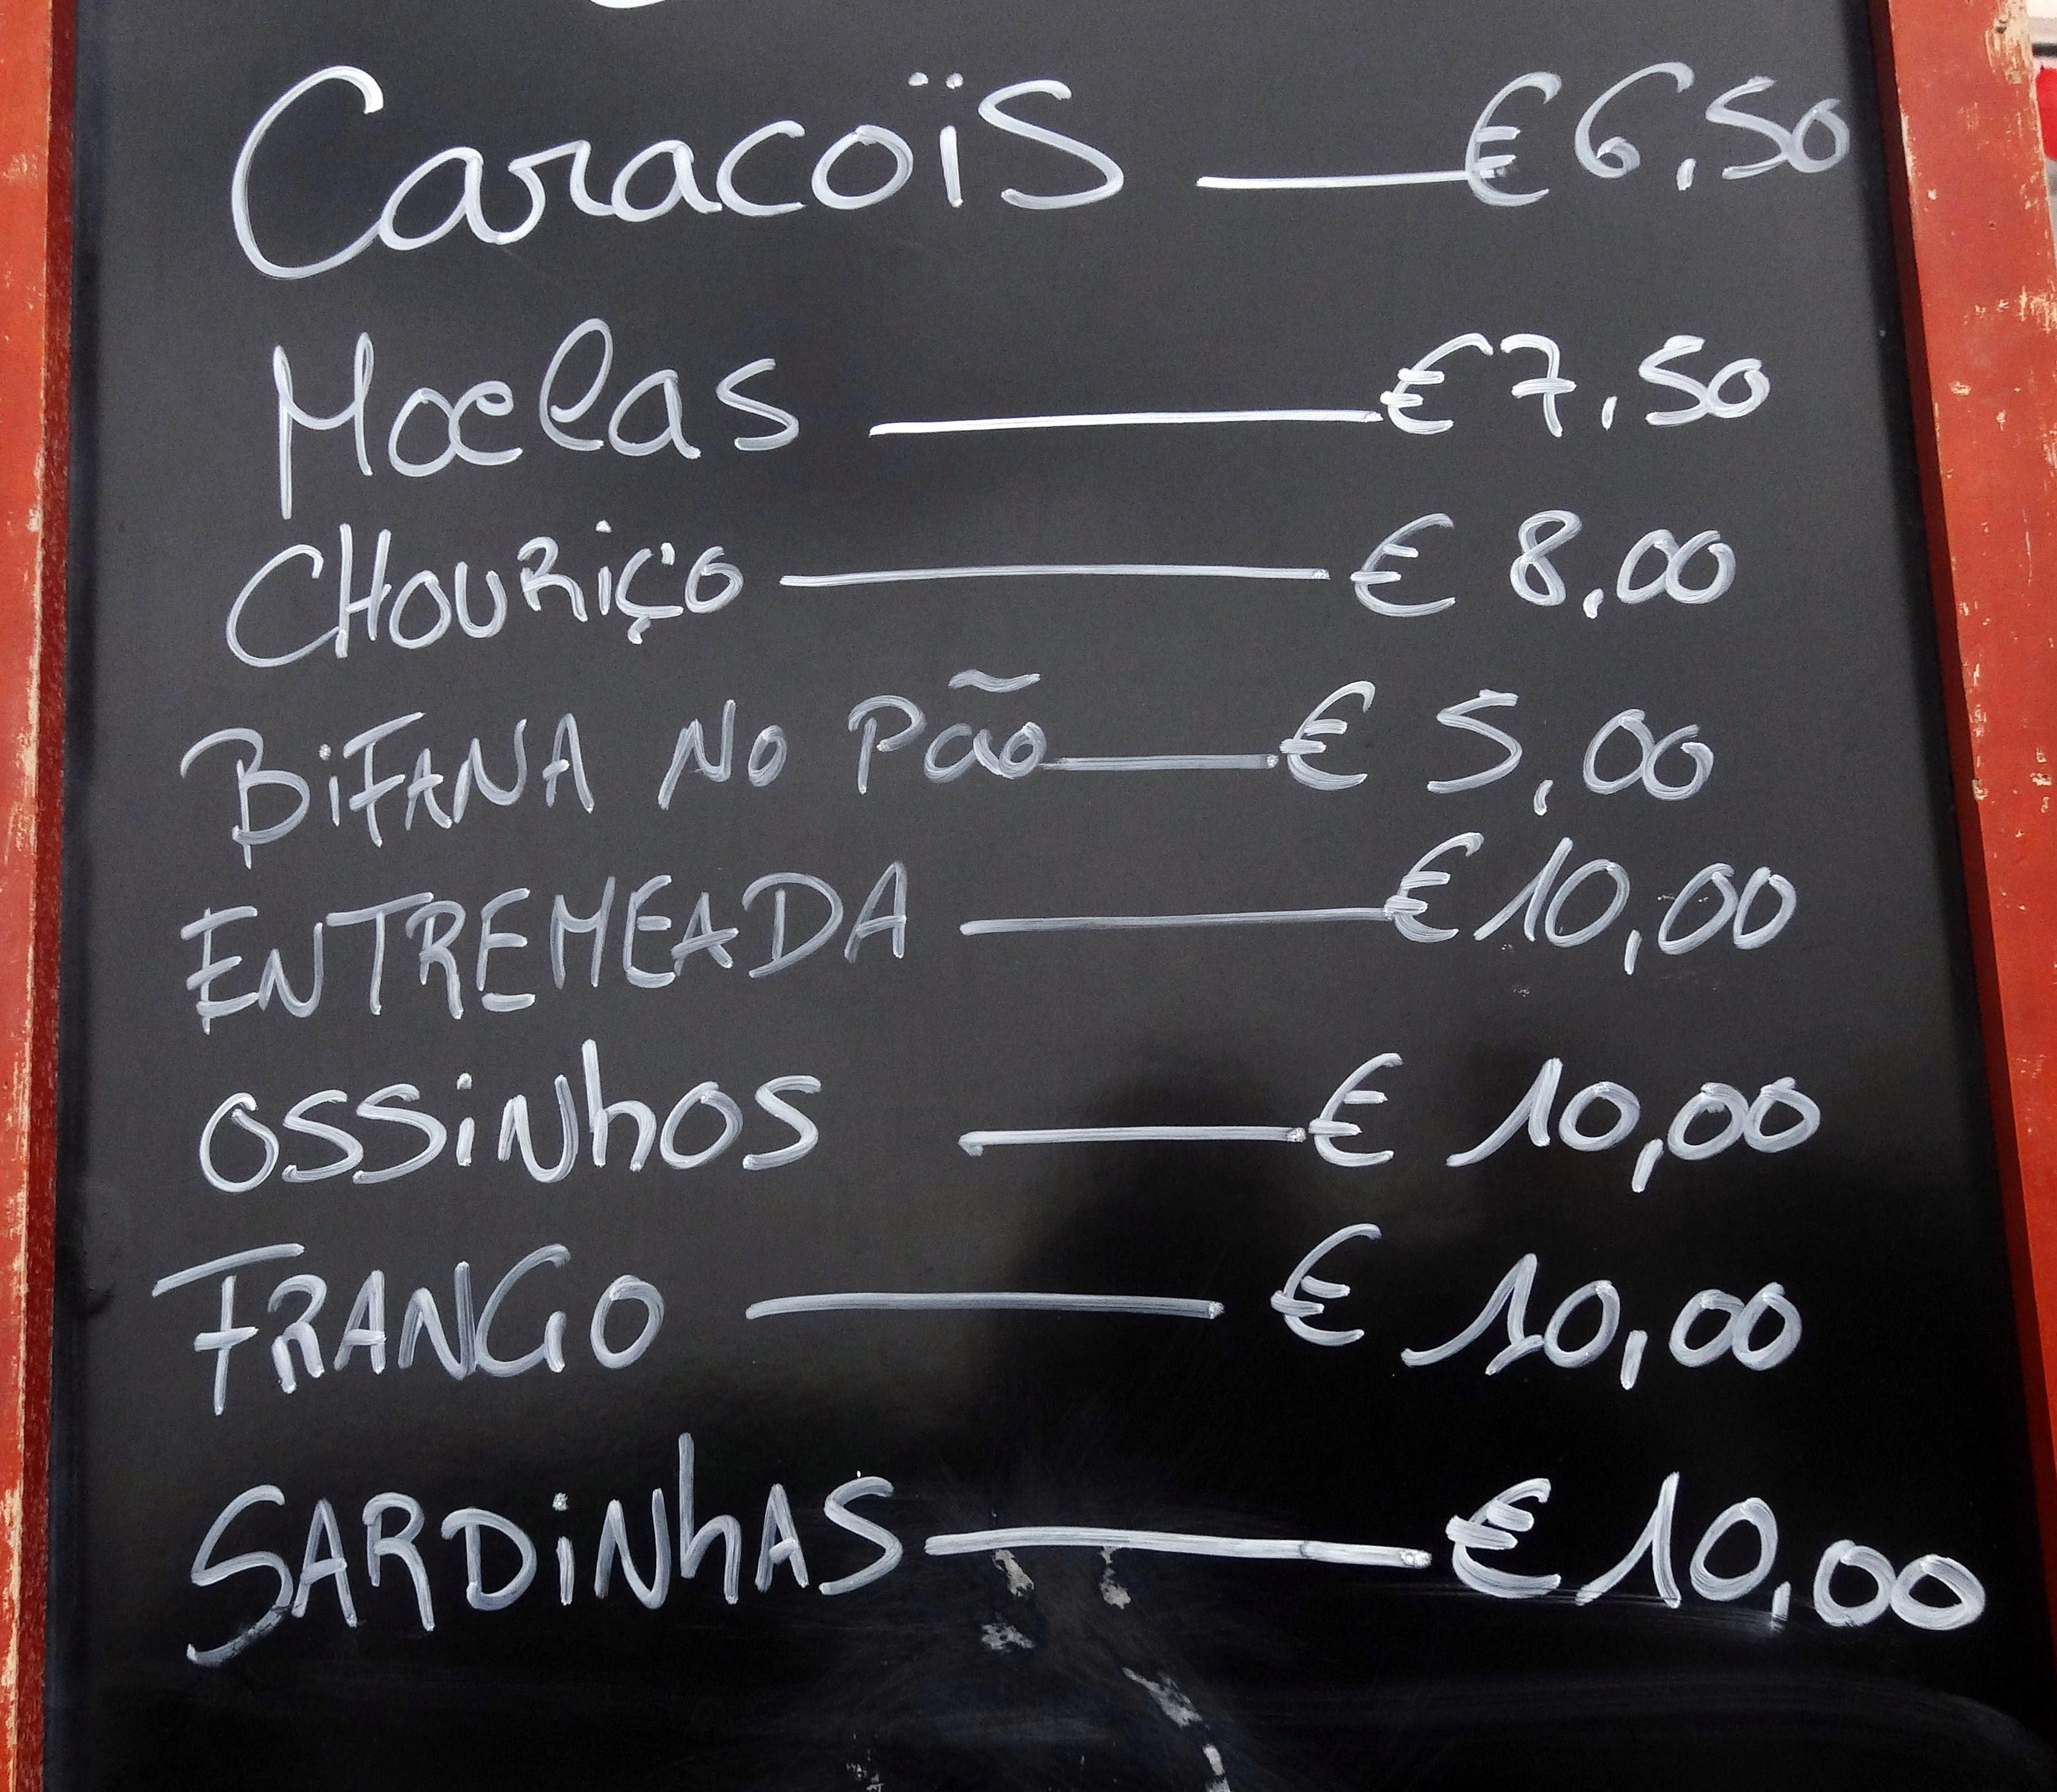 Caracoïs — € 6,50
Moelas — € 7,50
CHOURiÇO — € 8,00
BiFANA No Pão — € 5,00
ENTREMEADA — € 10,00
OSSiNhOS — € 10,00
FRANGO — € 10,00
SARDiNhAS — € 10,00